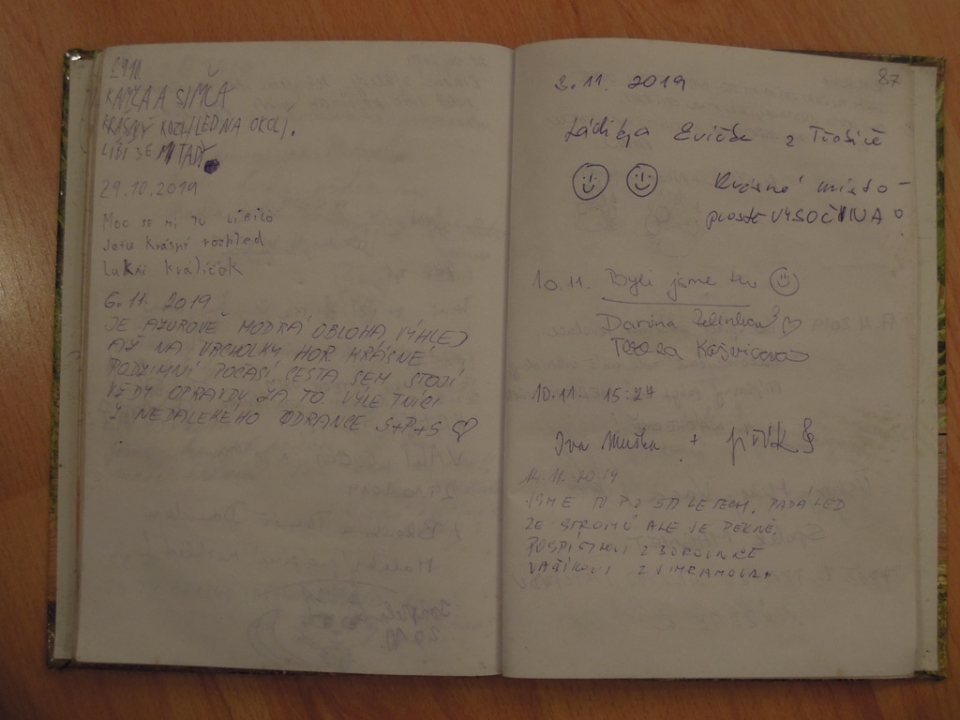 KAMČA A SIMČA
KRÁSNÝ ROZHLED NA OKOLÍ.
LÍBÍ SE MI TADY
29.10.2019
Moc se mi tu líbilo
Jetu krásní rozhled
Lukáš Králíček
6.11. 2019
JE AZUROVĚ MODRÁ OBLOHA, VÝHLED
AŽ NA VRCHOLKY HOR KRÁSNÉ
PODZIMNÍ POČASÍ CESTA SEM STOJÍ
VŽDY OPRAVDU ZA TO VÝLETNÍCI
Z NEDALEKÉHO ODRANCE S+P+S
87
3.11. 2019
Evička z
Krásné místo -
prostě VYSOČINA
10.11. Byli jsme tu
Darina
Tereza
10.11. 15:27
Iva +
14.11. 2019
JSME TU PO STO LETECH, PADÁ LED
ZE STROMŮ ALE JE PĚKNĚ
Z BOROVNICE
VAŠÍKOVI Z VÍRAMOVA